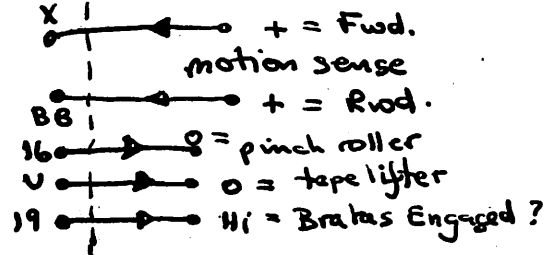 X + = Fwd.
motion sense
BB + = Rwd.
16 0 = pinch roller
V 0 = tape lifter
19 Hi = Brakes Engaged ?